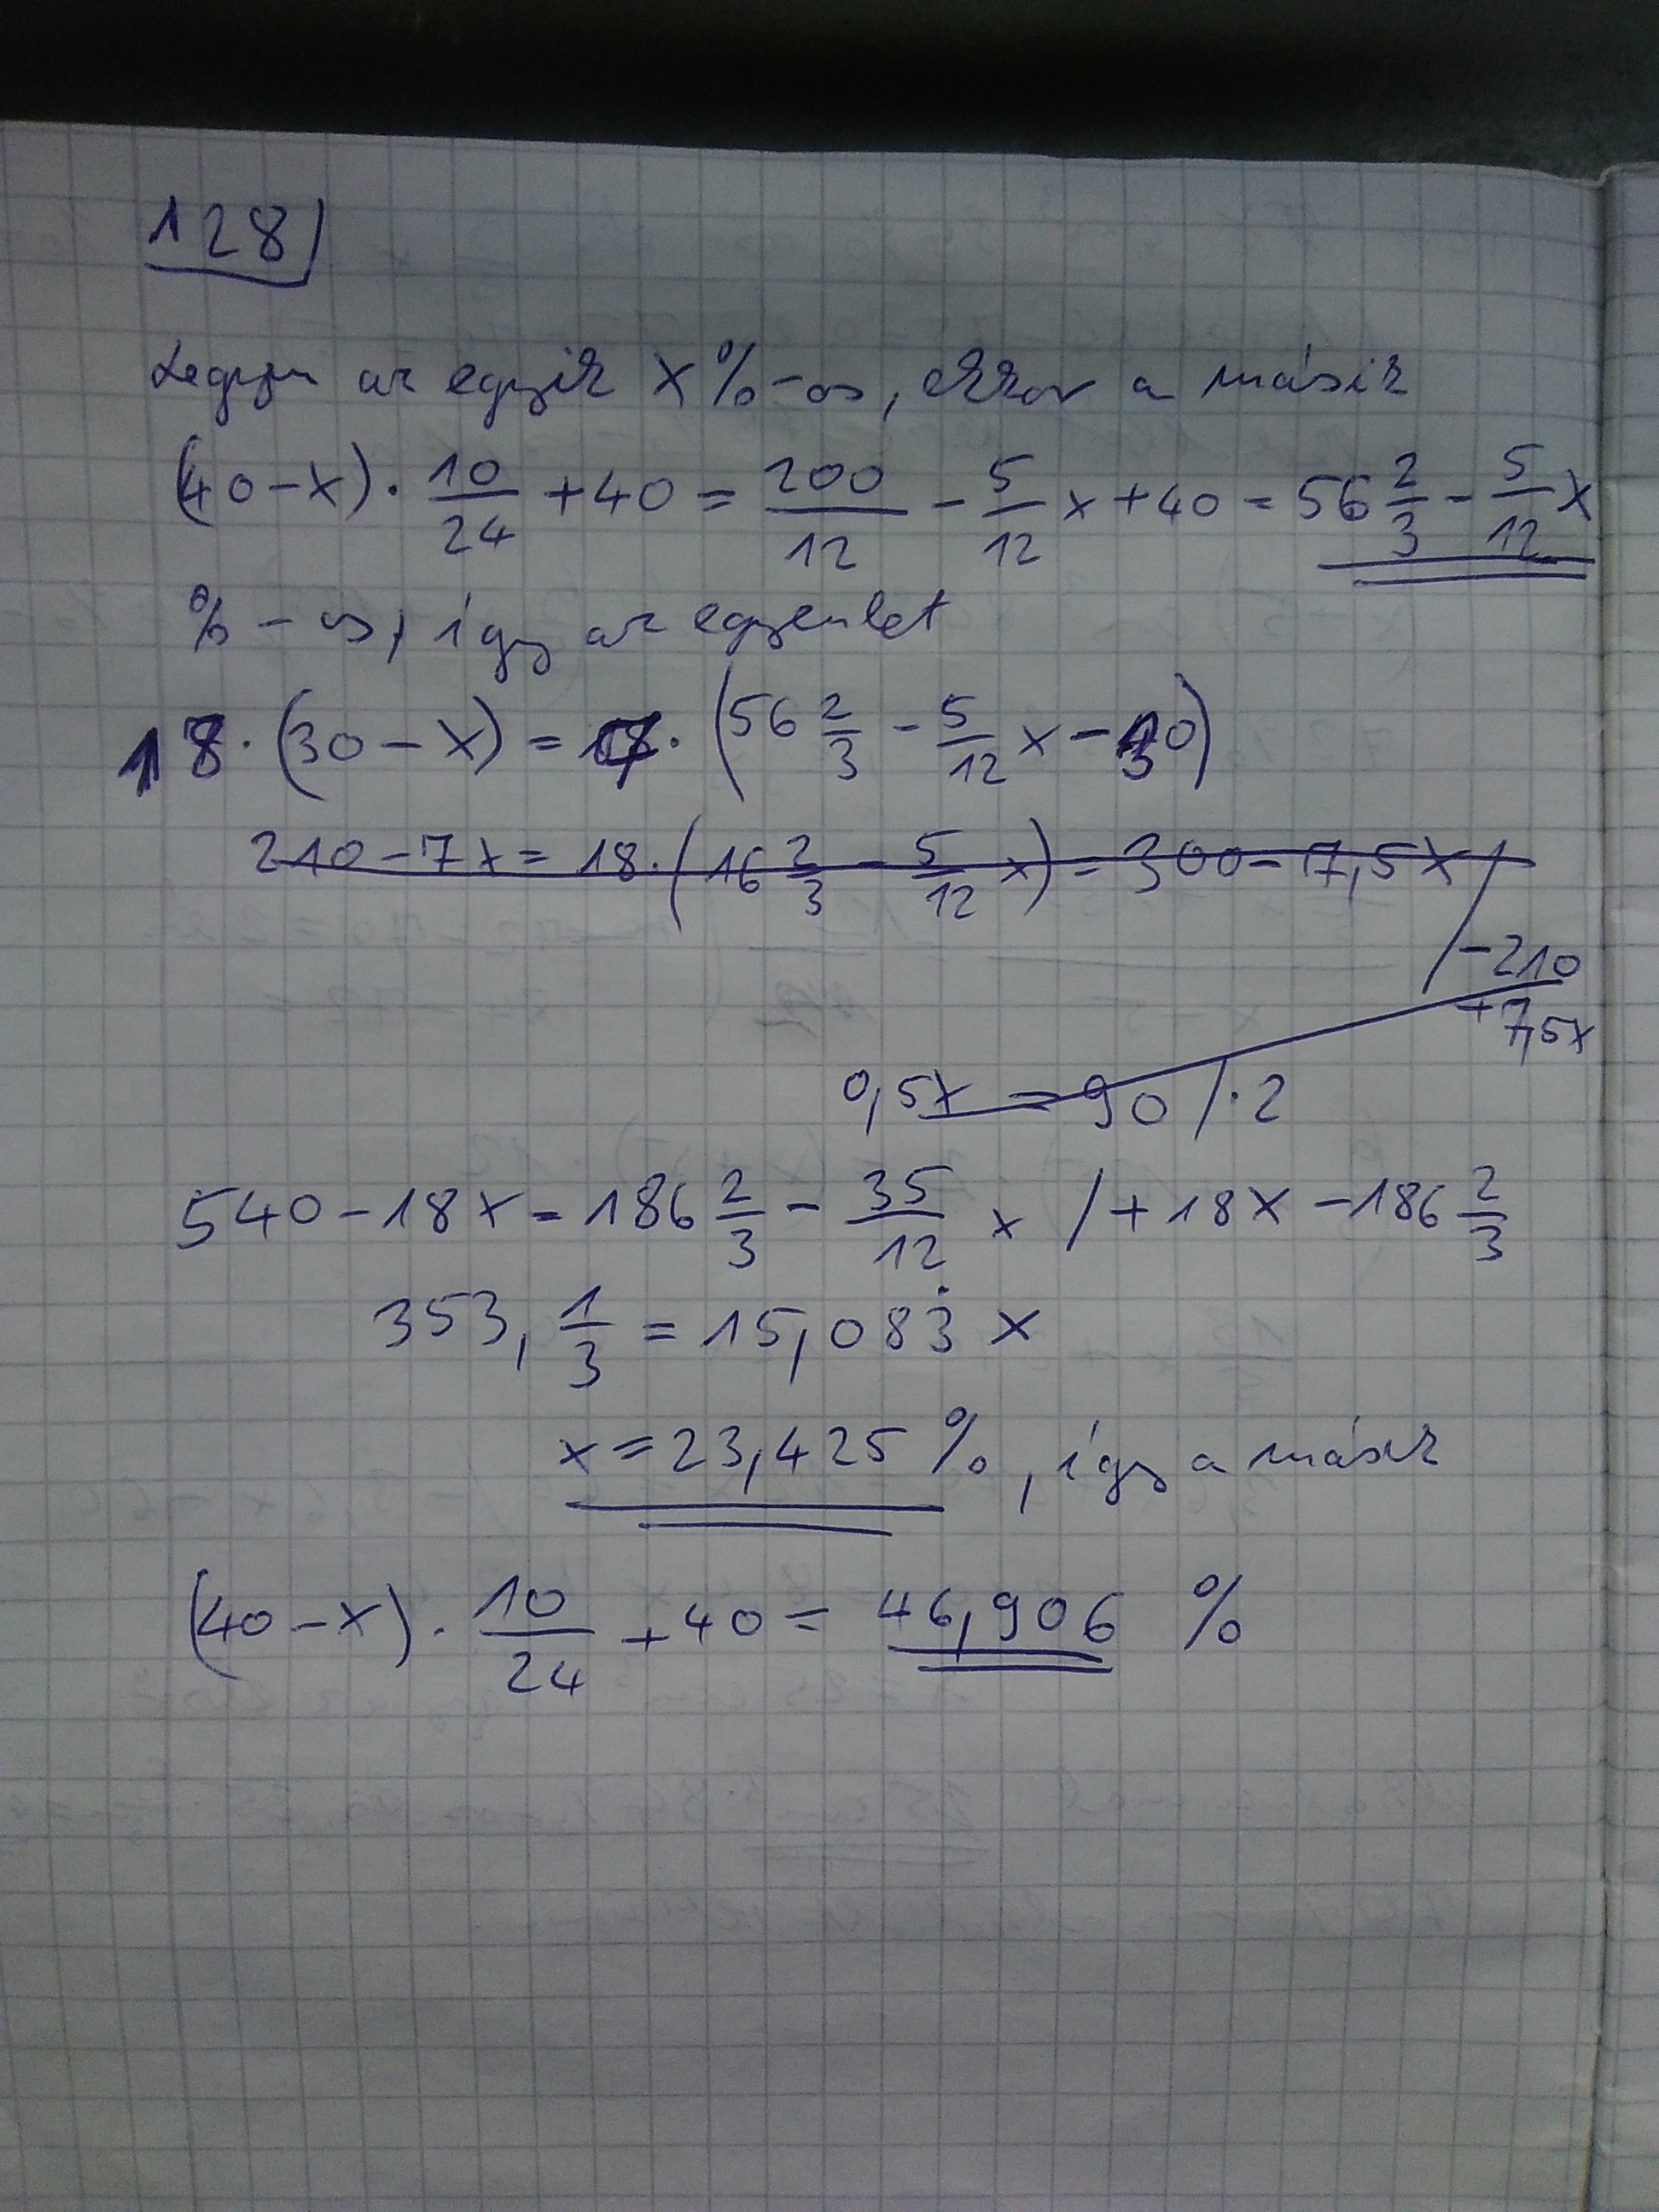 128)
Legyen az egyik x%-os, ekkor a másik
(40-x)·10/24+40=200/12-5/12x+40=56 2/3-5/12x
%-os, így az egyenlet
18·(30-x)=7·(56 2/3-5/12x-30)
210-7x=18·(16 2/3-5/12x)=300-7,5x/
-210
+7,5x
0,5x=90/·2
540-18x=186 2/3-35/12x/+18x-186 2/3
353,1/3=15,083̇x
x=23,425%, így a másik
(40-x)·10/24+40=46,906%